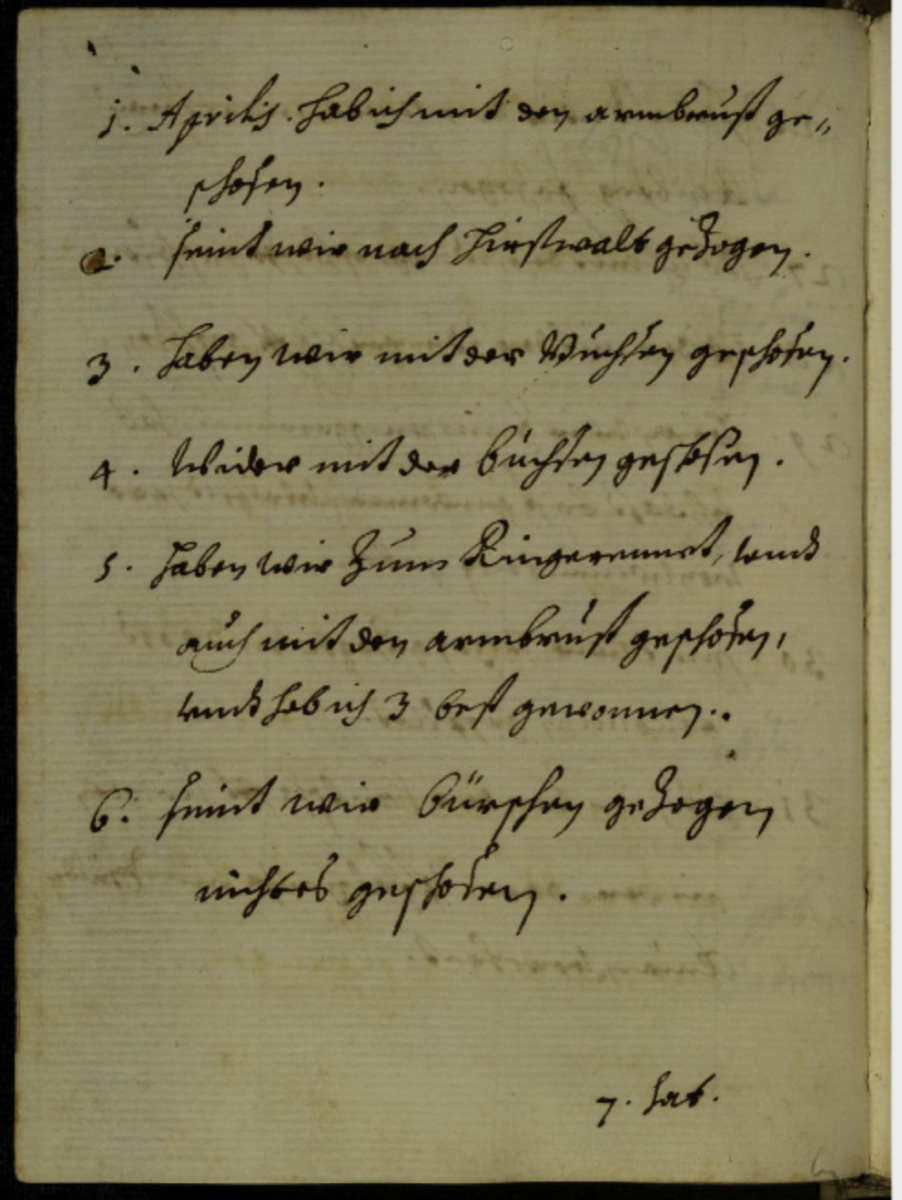 1. Aprilis. hab ich mit den armbrust ge-
schosen.
2. seint wir nach Hirstwalt gezogen.
3. haben wir mit der Buchsen geschosen.
4. Wider mit der buchsen geschosen.
5. haben wir zum Ringe rennet, vndt
auch mit den armbrust geschosen,
vndt hab ich 3 best gewonnen.
6. seint wir bürschen gezogen
nichtes geschosen.
7. hat.